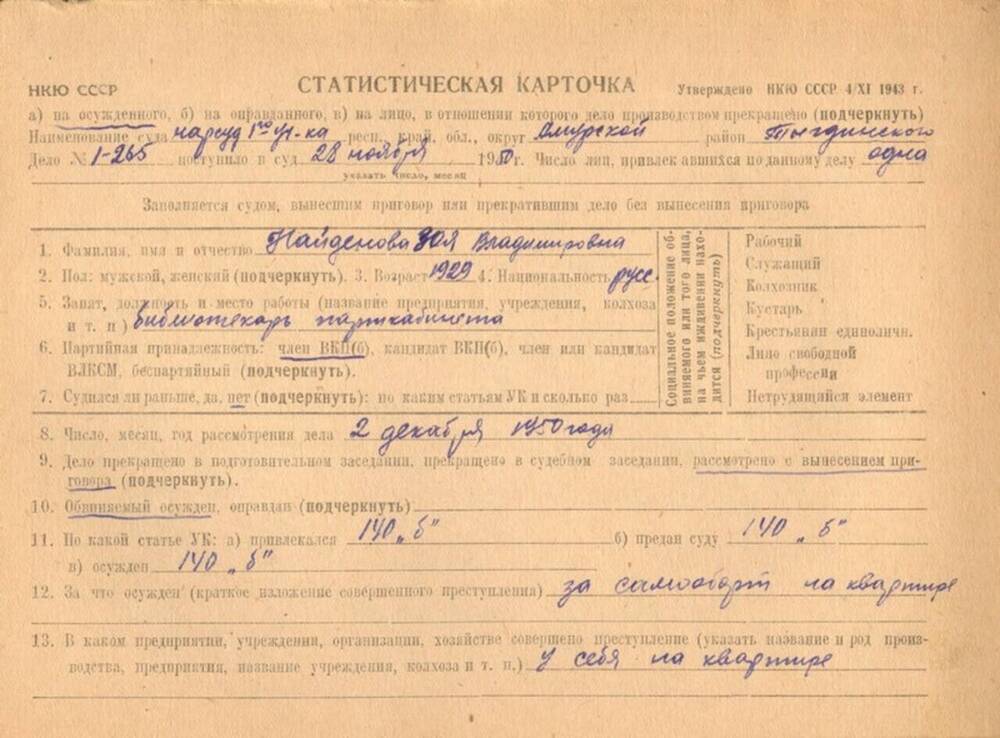 НКЮ СССР СТАТИСТИЧЕСКАЯ КАРТОЧКА Утверждено НКЮ СССР 4/XI 1943 г.
а) на осужденного, б) на оправданного, в) на лицо, в отношении которого дело производством прекращено (подчеркнуть)
Наименование суда нарсуд 1го уч-ка респ., край, обл., округ Амурской район Тыгдинского
Дело № 1-265 поступило в суд 28 ноября 1950 г. Число лиц, привлекавшихся по данному делу одна
указать число, месяц
Заполняется судом, вынесшим приговор или прекратившим дело без вынесения приговора
1. Фамилия, имя и отчество Найденова Зоя Владимировна
2. Пол: мужской, женский (подчеркнуть). 3. Возраст 1929 4. Национальность русс.
5. Занят, должность и место работы (название предприятия, учреждения, колхоза
и т. п) библиотекарь парткабинета
6. Партийная принадлежность: член ВКП(б), кандидат ВКП(б), член или кандидат
ВЛКСМ, беспартийный (подчеркнуть).
7. Судился ли раньше, да, нет (подчеркнуть): по каким статьям УК и сколько раз
Социальное положение об-
виняемого или того лица,
на чьем иждивении нахо-
дится (подчеркнуть)
Рабочий
Служащий
Колхозник
Кустарь
Крестьянин единоличн.
Лицо свободной
профессии
Нетрудящийся элемент
8. Число, месяц, год рассмотрения дела 2 декабря 1950 года
9. Дело прекращено в подготовительном заседании, прекращено в судебном заседании, рассмотрено с вынесением при-
говора (подчеркнуть).
10. Обвиняемый осужден, оправдан (подчеркнуть)
11. По какой статье УК: а) привлекался 140 „б" б) предан суду 140 „б"
в) осужден 140 „б"
12. За что осужден (краткое изложение совершенного преступления) за самооборт на квартире
13. В каком предприятии, учреждении, организации, хозяйстве совершено преступление (указать название и род произ-
водства, предприятия, название учреждения, колхоза и т. п.) у себя на квартире